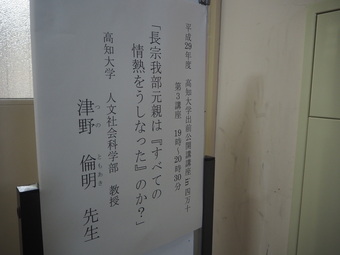 平成29年度　高知大学出前公開講座in四万十
第3講座　19時～20時30分
「長宗我部元親は『すべての
情熱をうしなった』のか？」
高知大学　人文社会科学部　教授
津野　倫明　先生
つの　ともあき